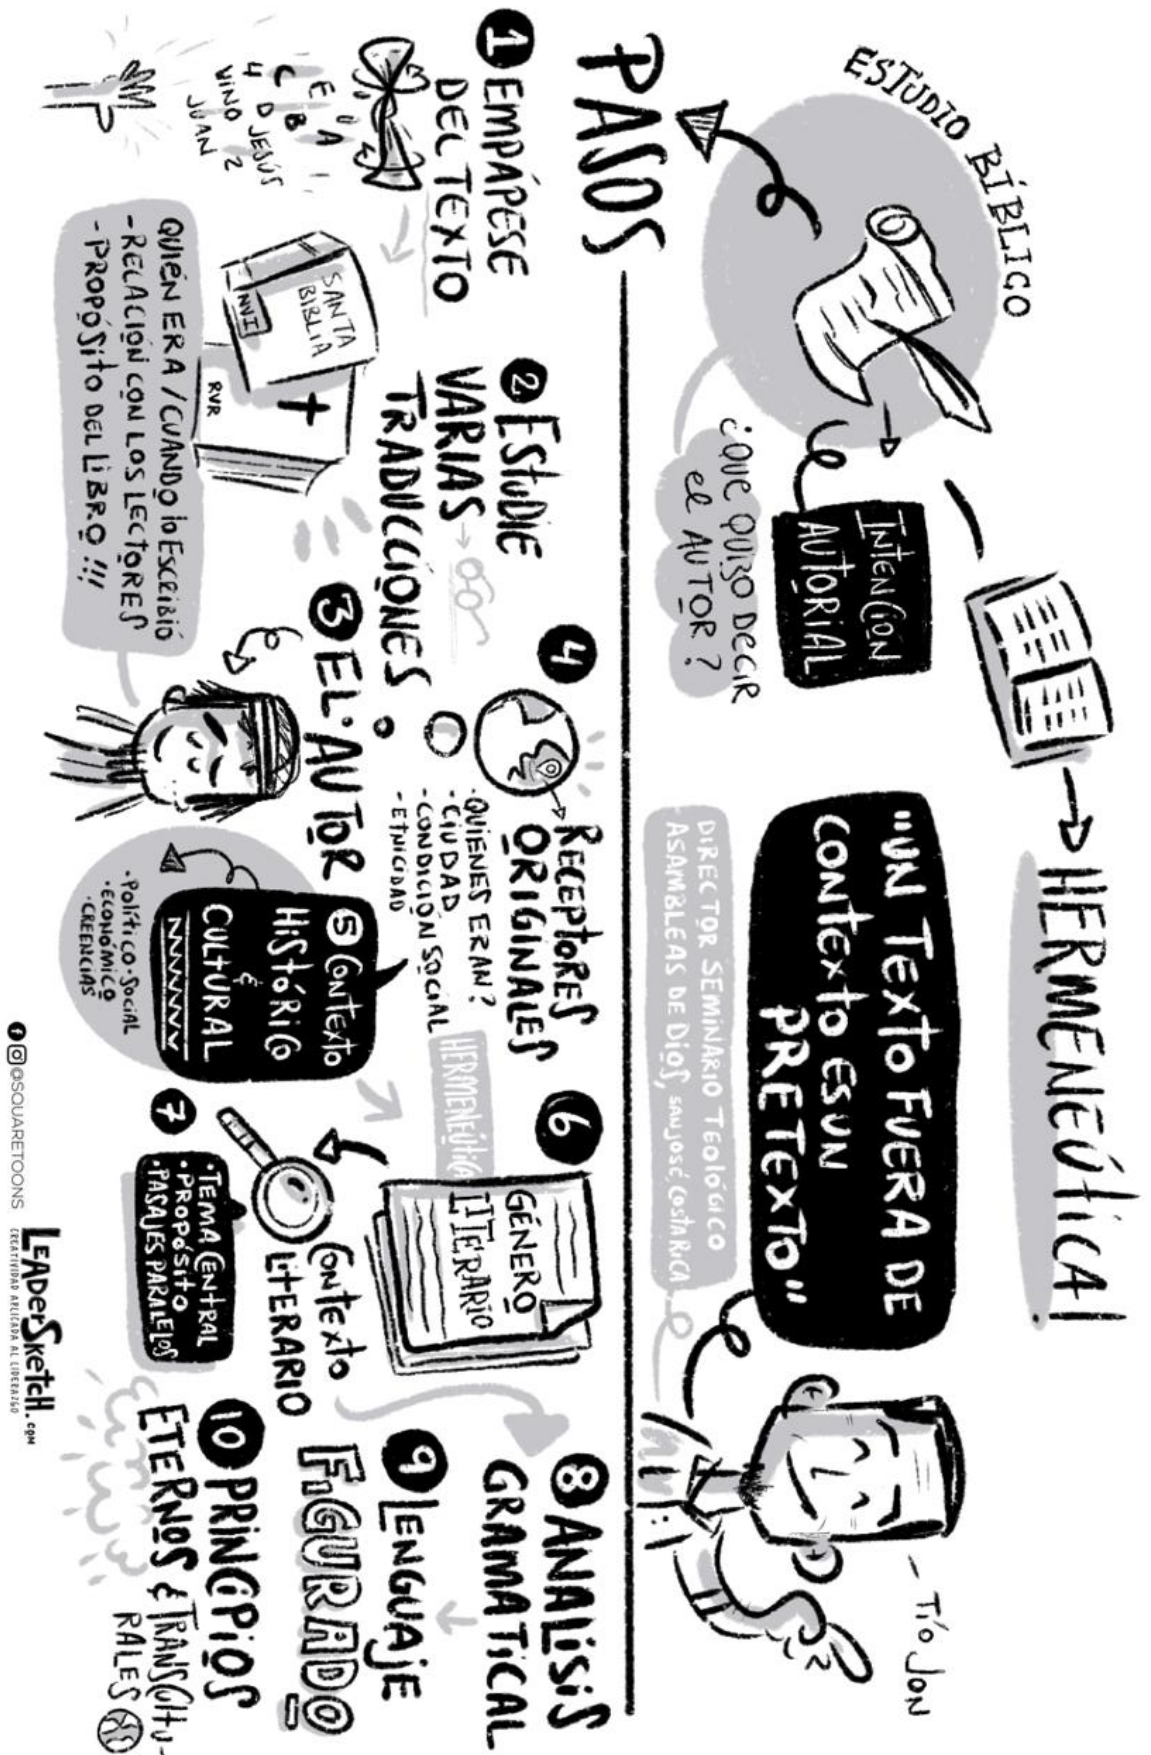 ESTUDIO BÍBLICO
INTENCION
AUTORIAL
¿QUE QUISO DECIR
el AUTOR?
HERMENEÚTICA
"UN TEXTO FUERA DE
CONTEXTO ES UN
PRETEXTO"
- TÍO JON
DIRECTOR SEMINARIO TEOLÓGICO
ASAMBLEAS DE DIOS, SAN JOSÉ, COSTA RICA
PASOS
1 EMPÁPESE
DEL TEXTO
E A
C B
4 D JESÚS
VINO 2
JUAN
2 ESTUDIE
VARIAS
TRADUCCIONES
SANTA
BIBLIA
NVI
+
RVR
3 EL AUTOR
QUIÉN ERA / CUANDO lo ESCRIBIÓ
- RELACIÓN CON LOS LECTORES
- PROPÓSITO DEL LIBRO!!!
4 RECEPTORES
ORIGINALES
· QUIENES ERAN?
· CIUDAD
- CONDICIÓN SOCIAL
- ETNICIDAD
5 CONTEXTO
HISTÓRICO
&
CULTURAL
· POLÍTICO · SOCIAL
· ECONÓMICO
· CREENCIAS
HERMENEÚTICA
6
GÉNERO
LITERARIO
7
CONTEXTO
LITERARIO
· TEMA CENTRAL
· PROPÓSITO
· PASAJES PARALELOS
8 ANALISIS
GRAMATICAL
9 LENGUAJE
FIGURADO
10 PRINCIPIOS
ETERNOS & TRANSCULTU-
RALES
@SQUARETOONS
LEADERSKETCH.COM
CREATIVIDAD APLICADA AL LIDERAZGO